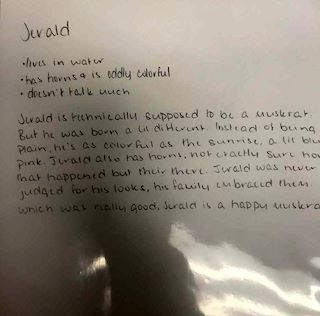 Jerald
•lives in water
•has horns & is oddly colorful
•doesn't talk much
Jerald is technically supposed to be a muskrat.
But he was born a lil different. Instead of being
plain, he's as colorful as the sunrise, a lil blu
pink. Jerald also has horns, not exactly sure how
that happened but their there. Jerald was never
judged for his looks, his family embraced them.
which was really good, Jerald is a happy muskra